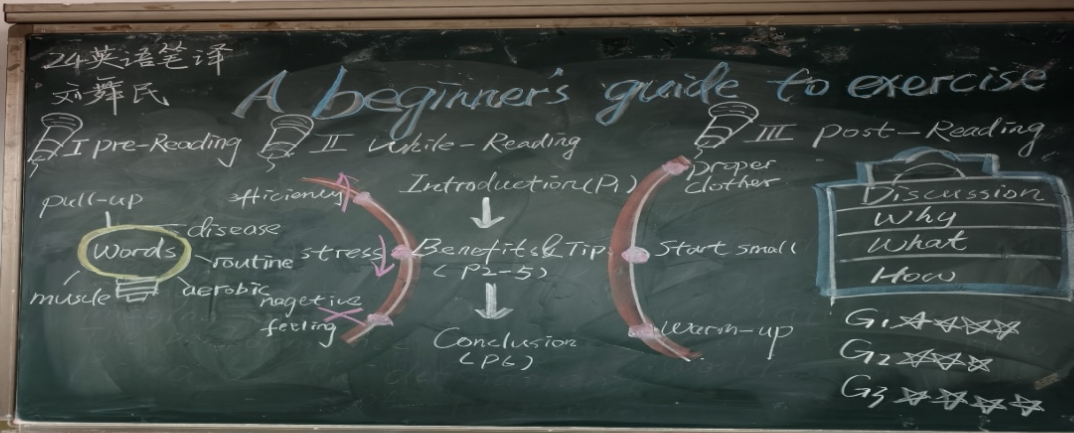 24英语笔译
刘舞民
A beginner's guide to exercise
I pre-Reading
II While-Reading
III post-Reading
pull-up
disease
Words
routine
muscle
aerobic
efficiency
stress
nagetive
feeling
Introduction(P1)
Benefits & Tips
(P2-5)
Conclusion
(P6)
proper
clother
Start small
Warm-up
Discussion
Why
What
How
G1 ☆☆☆☆
G2 ☆☆☆
G3 ☆☆☆☆